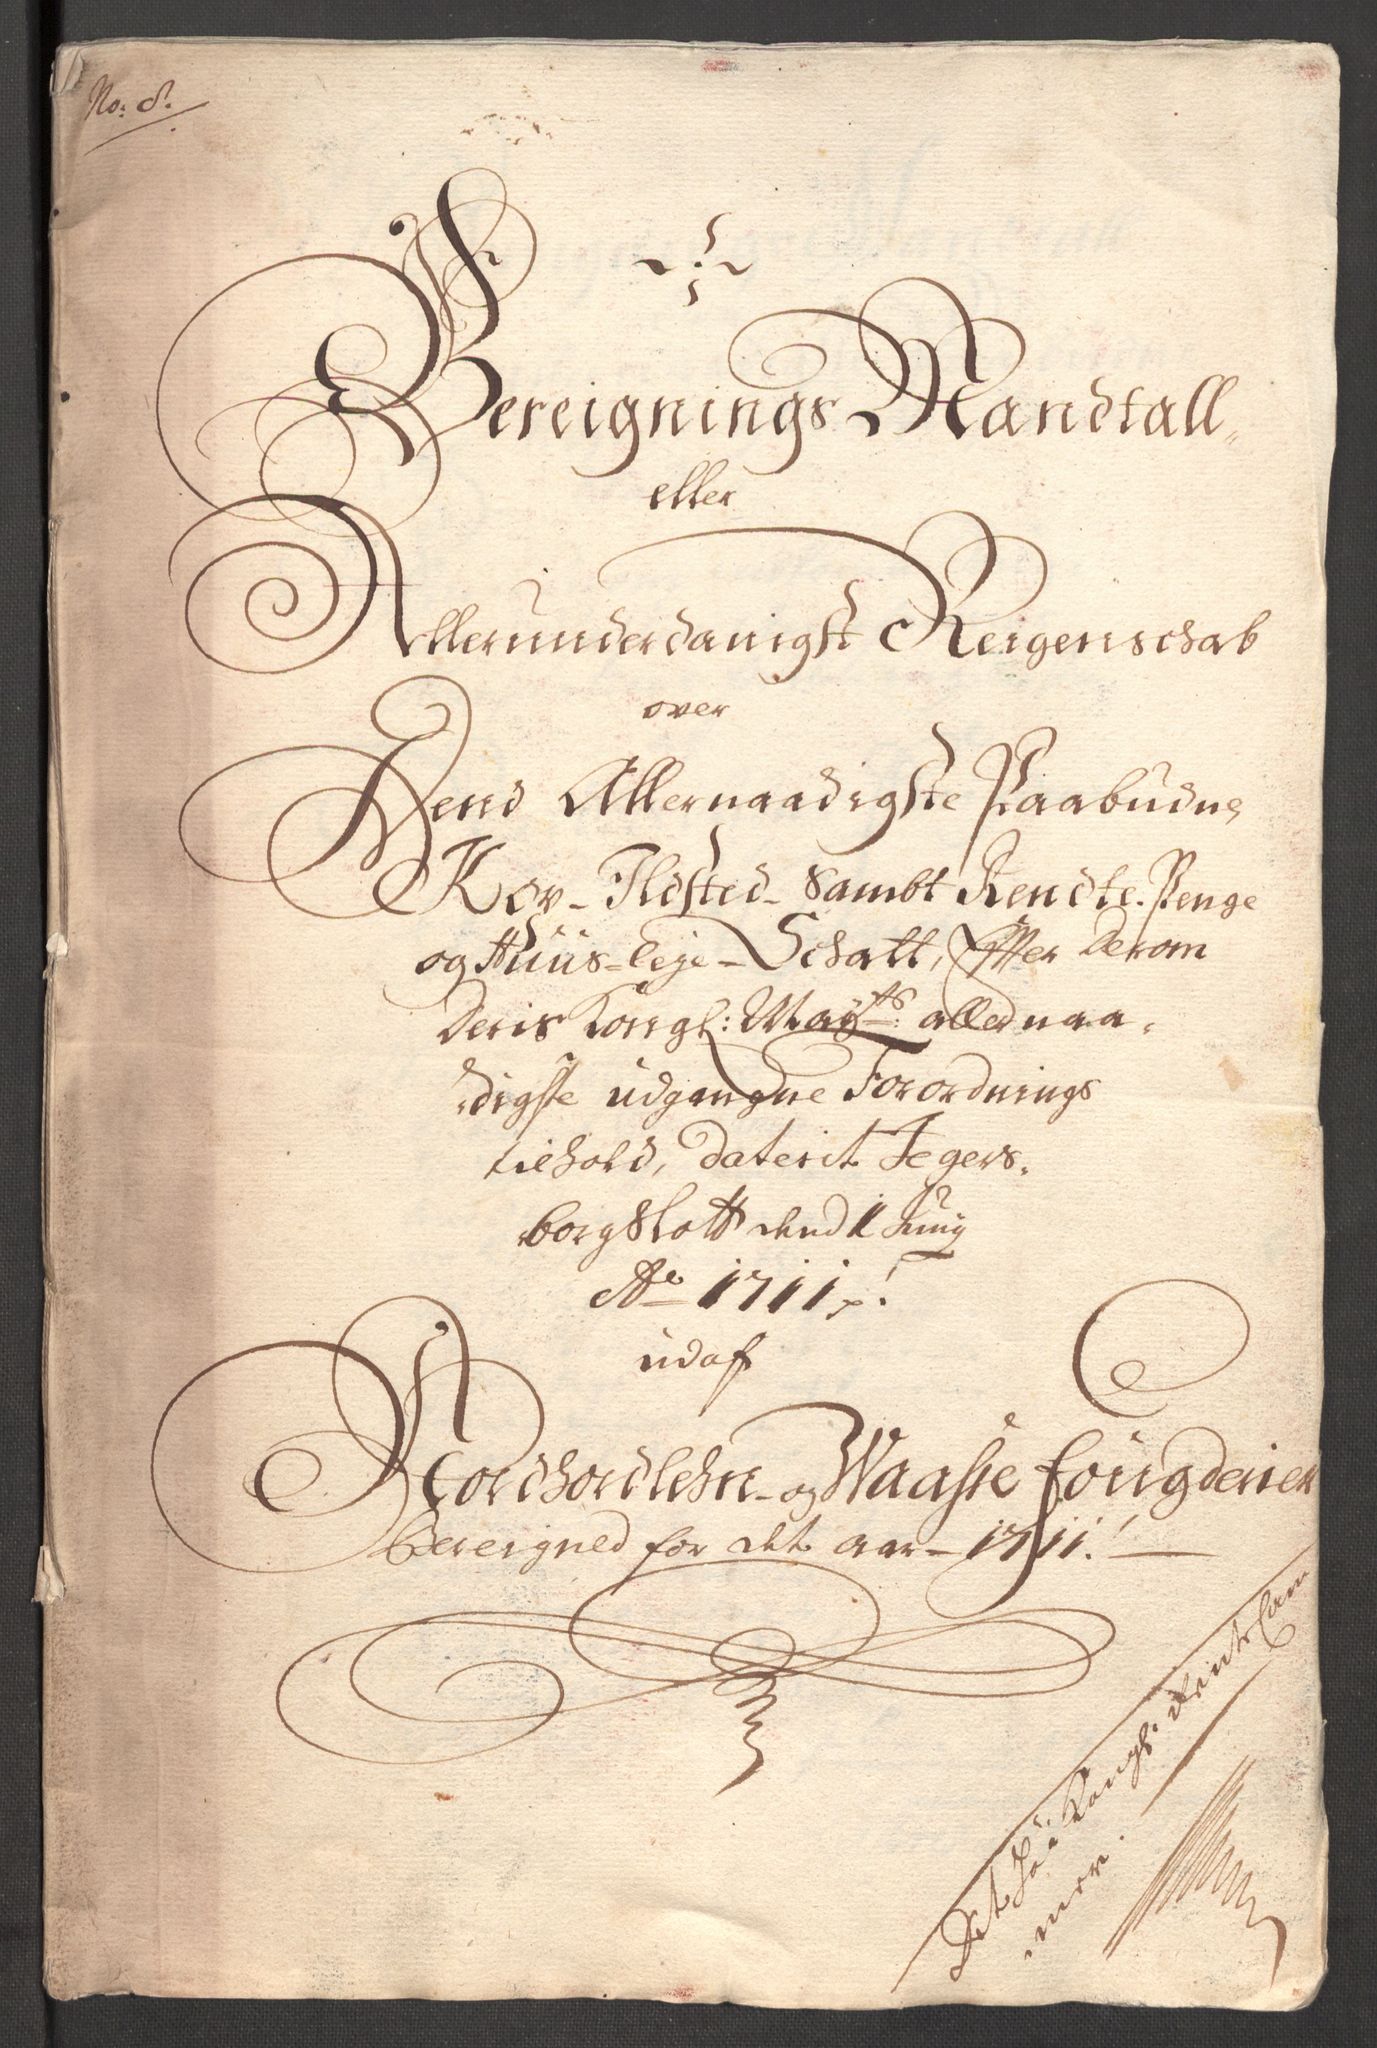 No: 8.
Bereignings Mandtall
eller
Allerunderdanigst Reigenschab
over
Dend Allernaadigste Paabudne
Kov- Ildsted- Sambt Rendte-Penge
og Huus-leje-Schatt, Effter derom
Deris Kongl: Mayts: allernaa-
digste udgangne Forordnings
tiehold, daterit Jegers-
borg Slott dend 1 Junij
Ao 1711
udaf
Nordhordlehn- og Waasse fougderier
Bereigned for det aar- 1711.
Det Kongl: Rente Cam
mer.